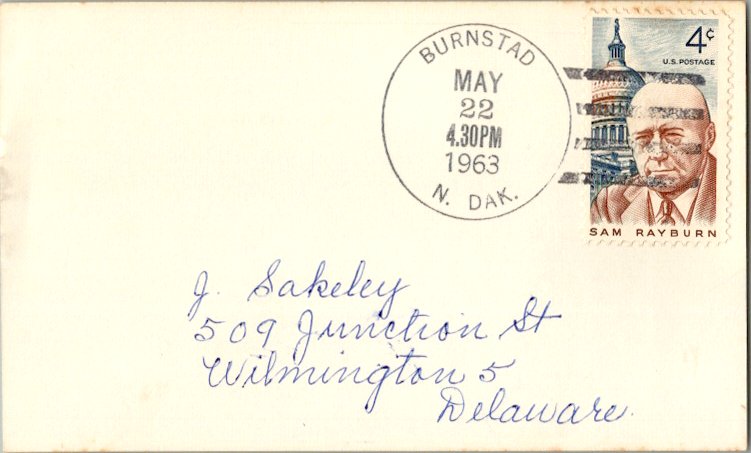 BURNSTAD
MAY
22
4.30PM
1963
N. DAK.
4¢
U.S. POSTAGE
SAM RAYBURN
J. Sakeley
509 Junction St
Wilmington 5
Delaware.